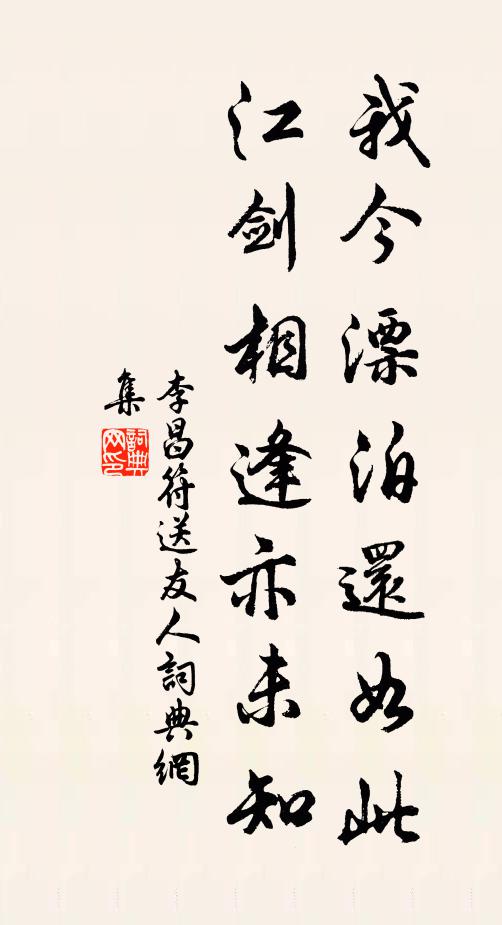 我今漂泊還如此
江剑相逢亦未知
李昌符送友人詞典網
集
詞典
网印